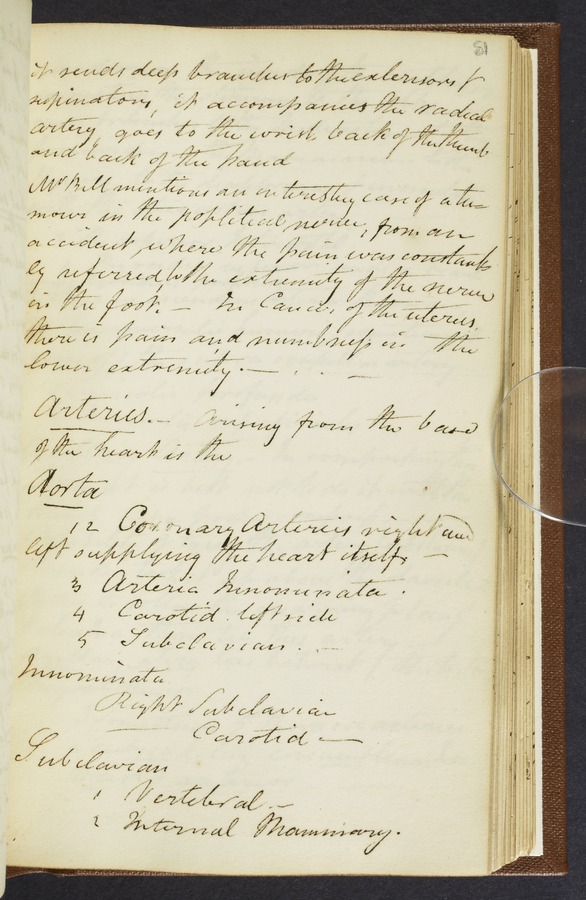 81
it sends deep branches to the extensors &
supinators, it accompanies the radial
artery goes to the wrist, back of the thumb
and back of the hand
Mr Bell mentions an interesting case of a tu=
mour in the popliteal nerve, from an
accident, where the pain was constant
ly referred to the extremity of the nerve
in the foot. — In Cancer of the uterus,
there is pain and numbness in the
lower extremity. — . . —
Arteries. — Arising from the base
of the heart is the
Aorta
1 2 Coronary Arteries right and
left supplying the heart itself —
3 Arteria Innominata .
4 Carotid left side
5 Subclavian . —
Innominata
Right Subclavian
— Carotid —
Subclavian
1 Vertebral. —
2 Internal Mammary.